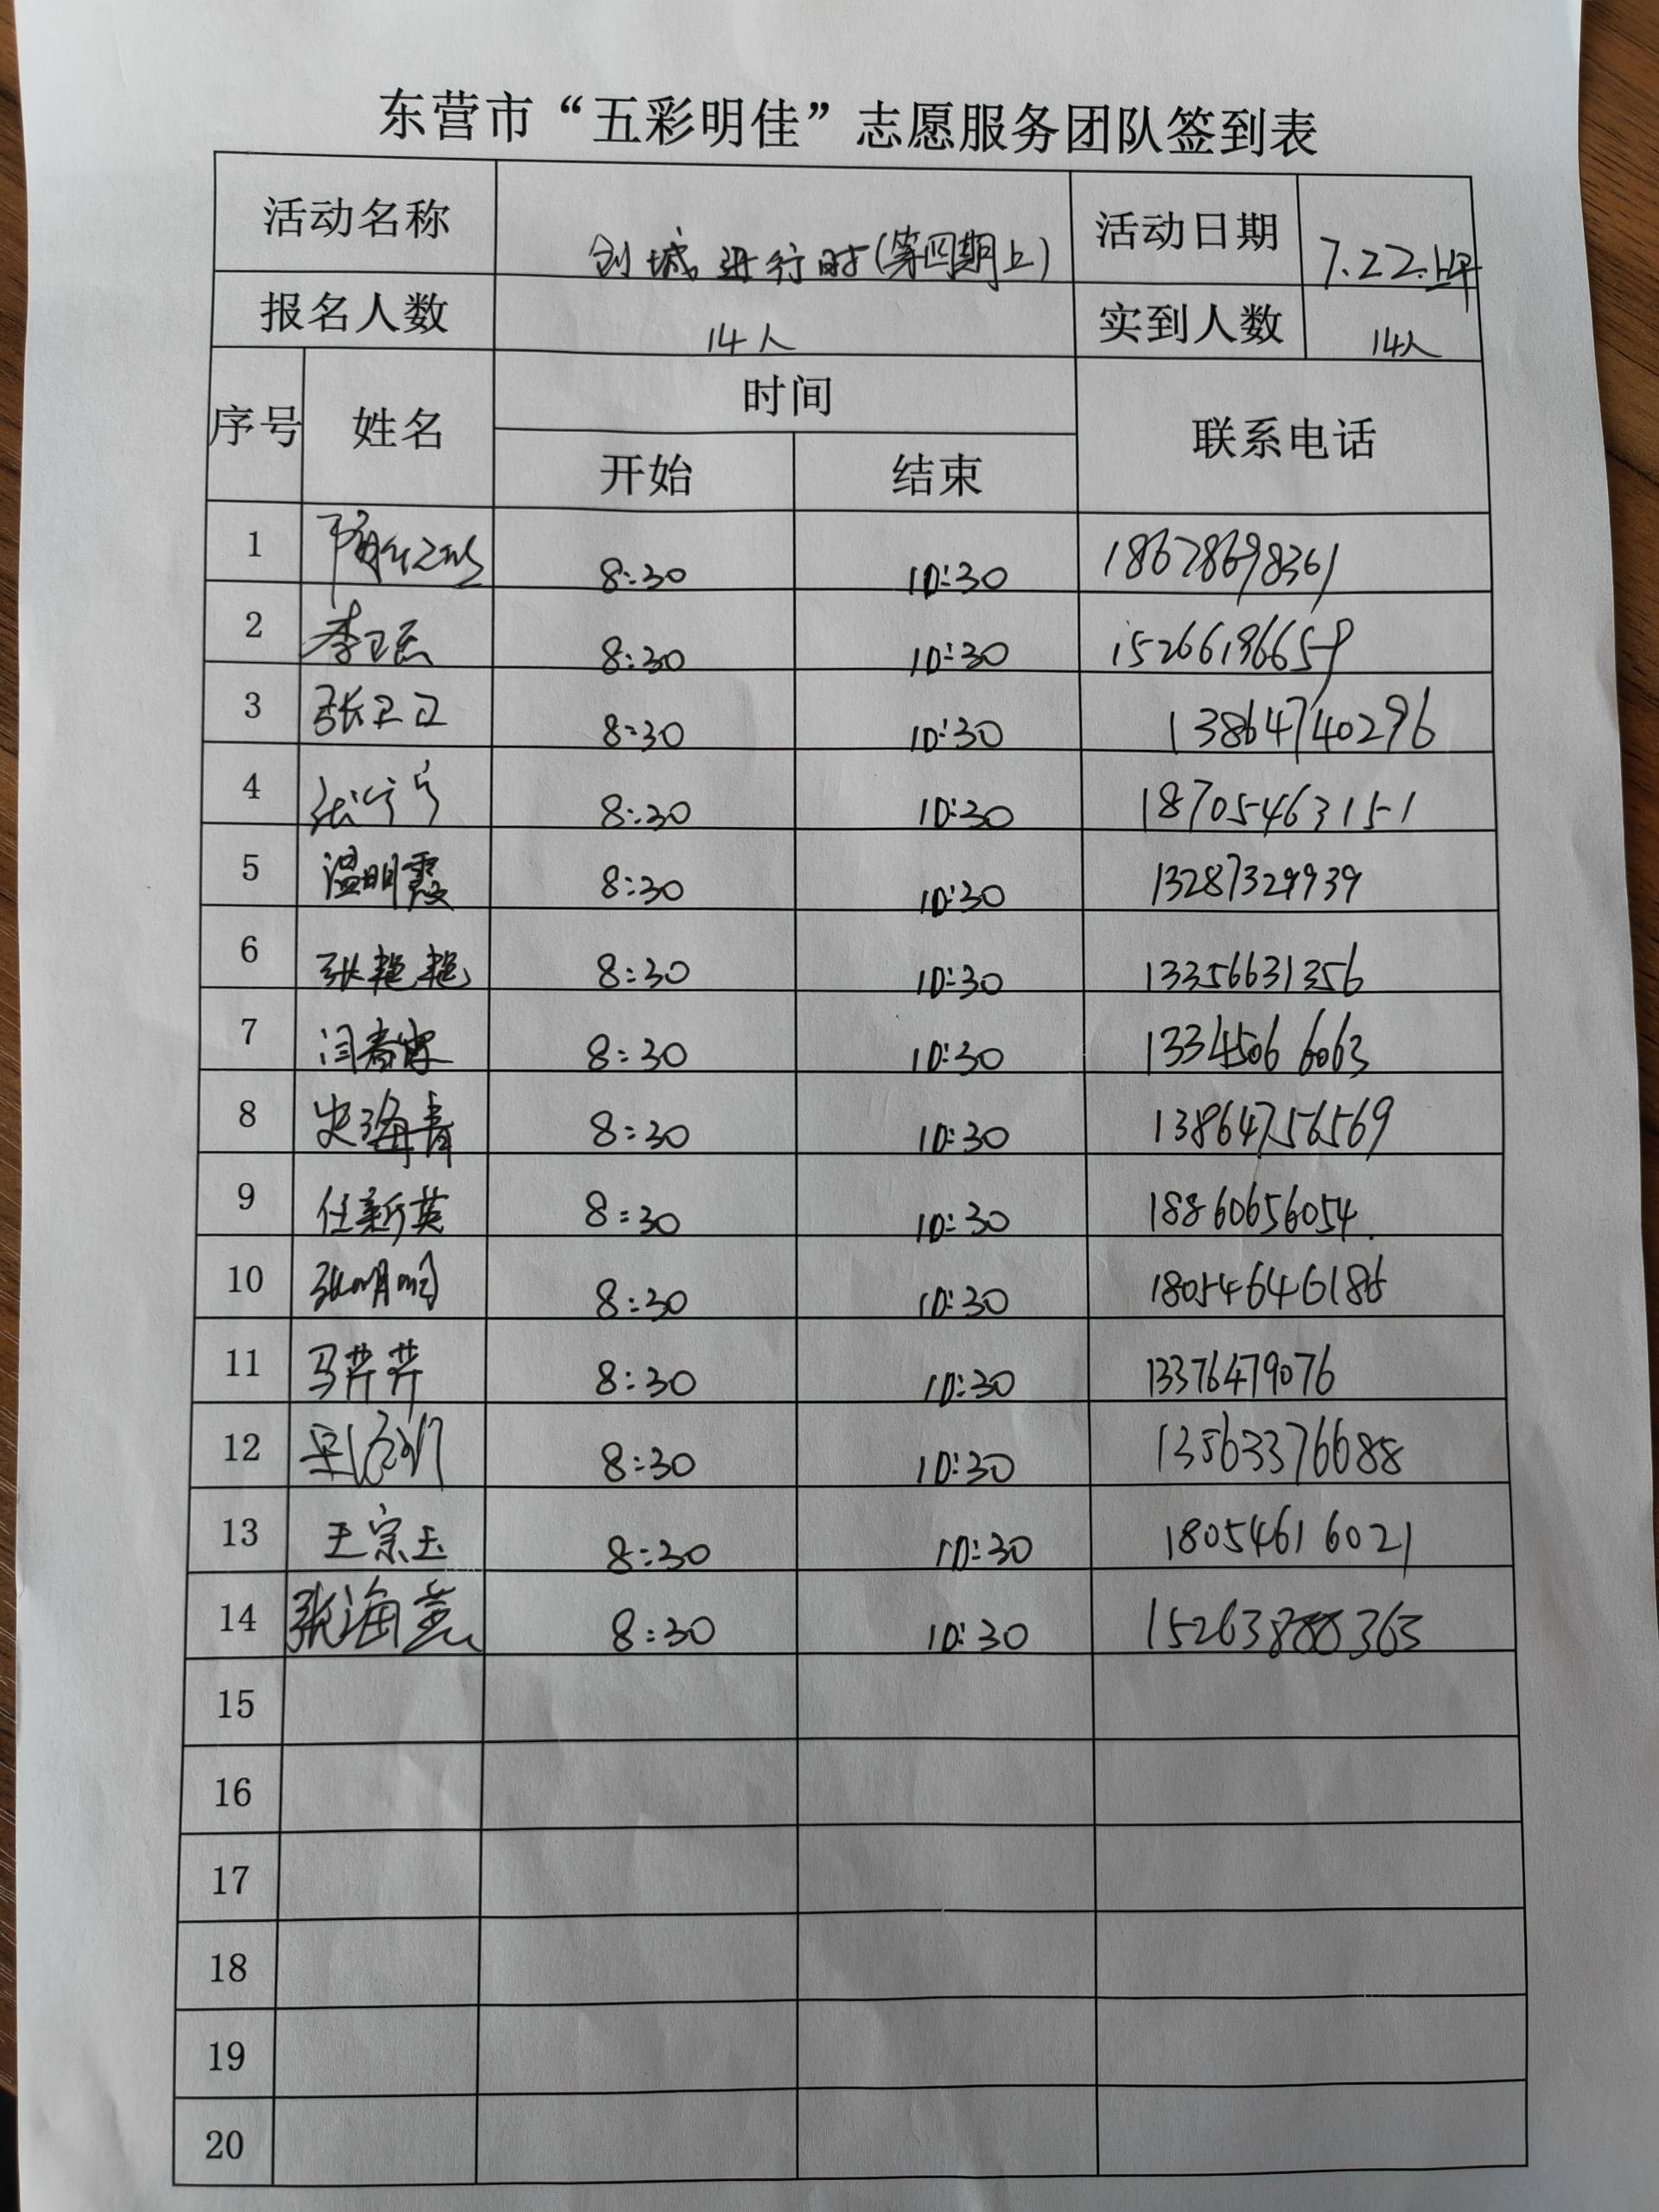 东营市“五彩明佳”志愿服务团队签到表
活动名称 创城进行时(第四期上) 活动日期 7.22.上午
报名人数 14人 实到人数 14人
序号 姓名 时间 联系电话
开始 结束
1 8:30 10:30 18678698361
2 李卫 8:30 10:30 15266196659
3 张卫卫 8:30 10:30 13864740296
4 张宁宁 8:30 10:30 18705463151
5 温明霞 8:30 10:30 13287329939
6 张艳艳 8:30 10:30 13356631356
7 闫春 8:30 10:30 13345066063
8 史海青 8:30 10:30 13864756569
9 任新英 8:30 10:30 18860656054
10 张明明 8:30 10:30 18054646186
11 马芹芹 8:30 10:30 13376479076
12 8:30 10:30 13563376688
13 王宗玉 8:30 10:30 18054616021
14 张海燕 8:30 10:30 15263888363
15
16
17
18
19
20